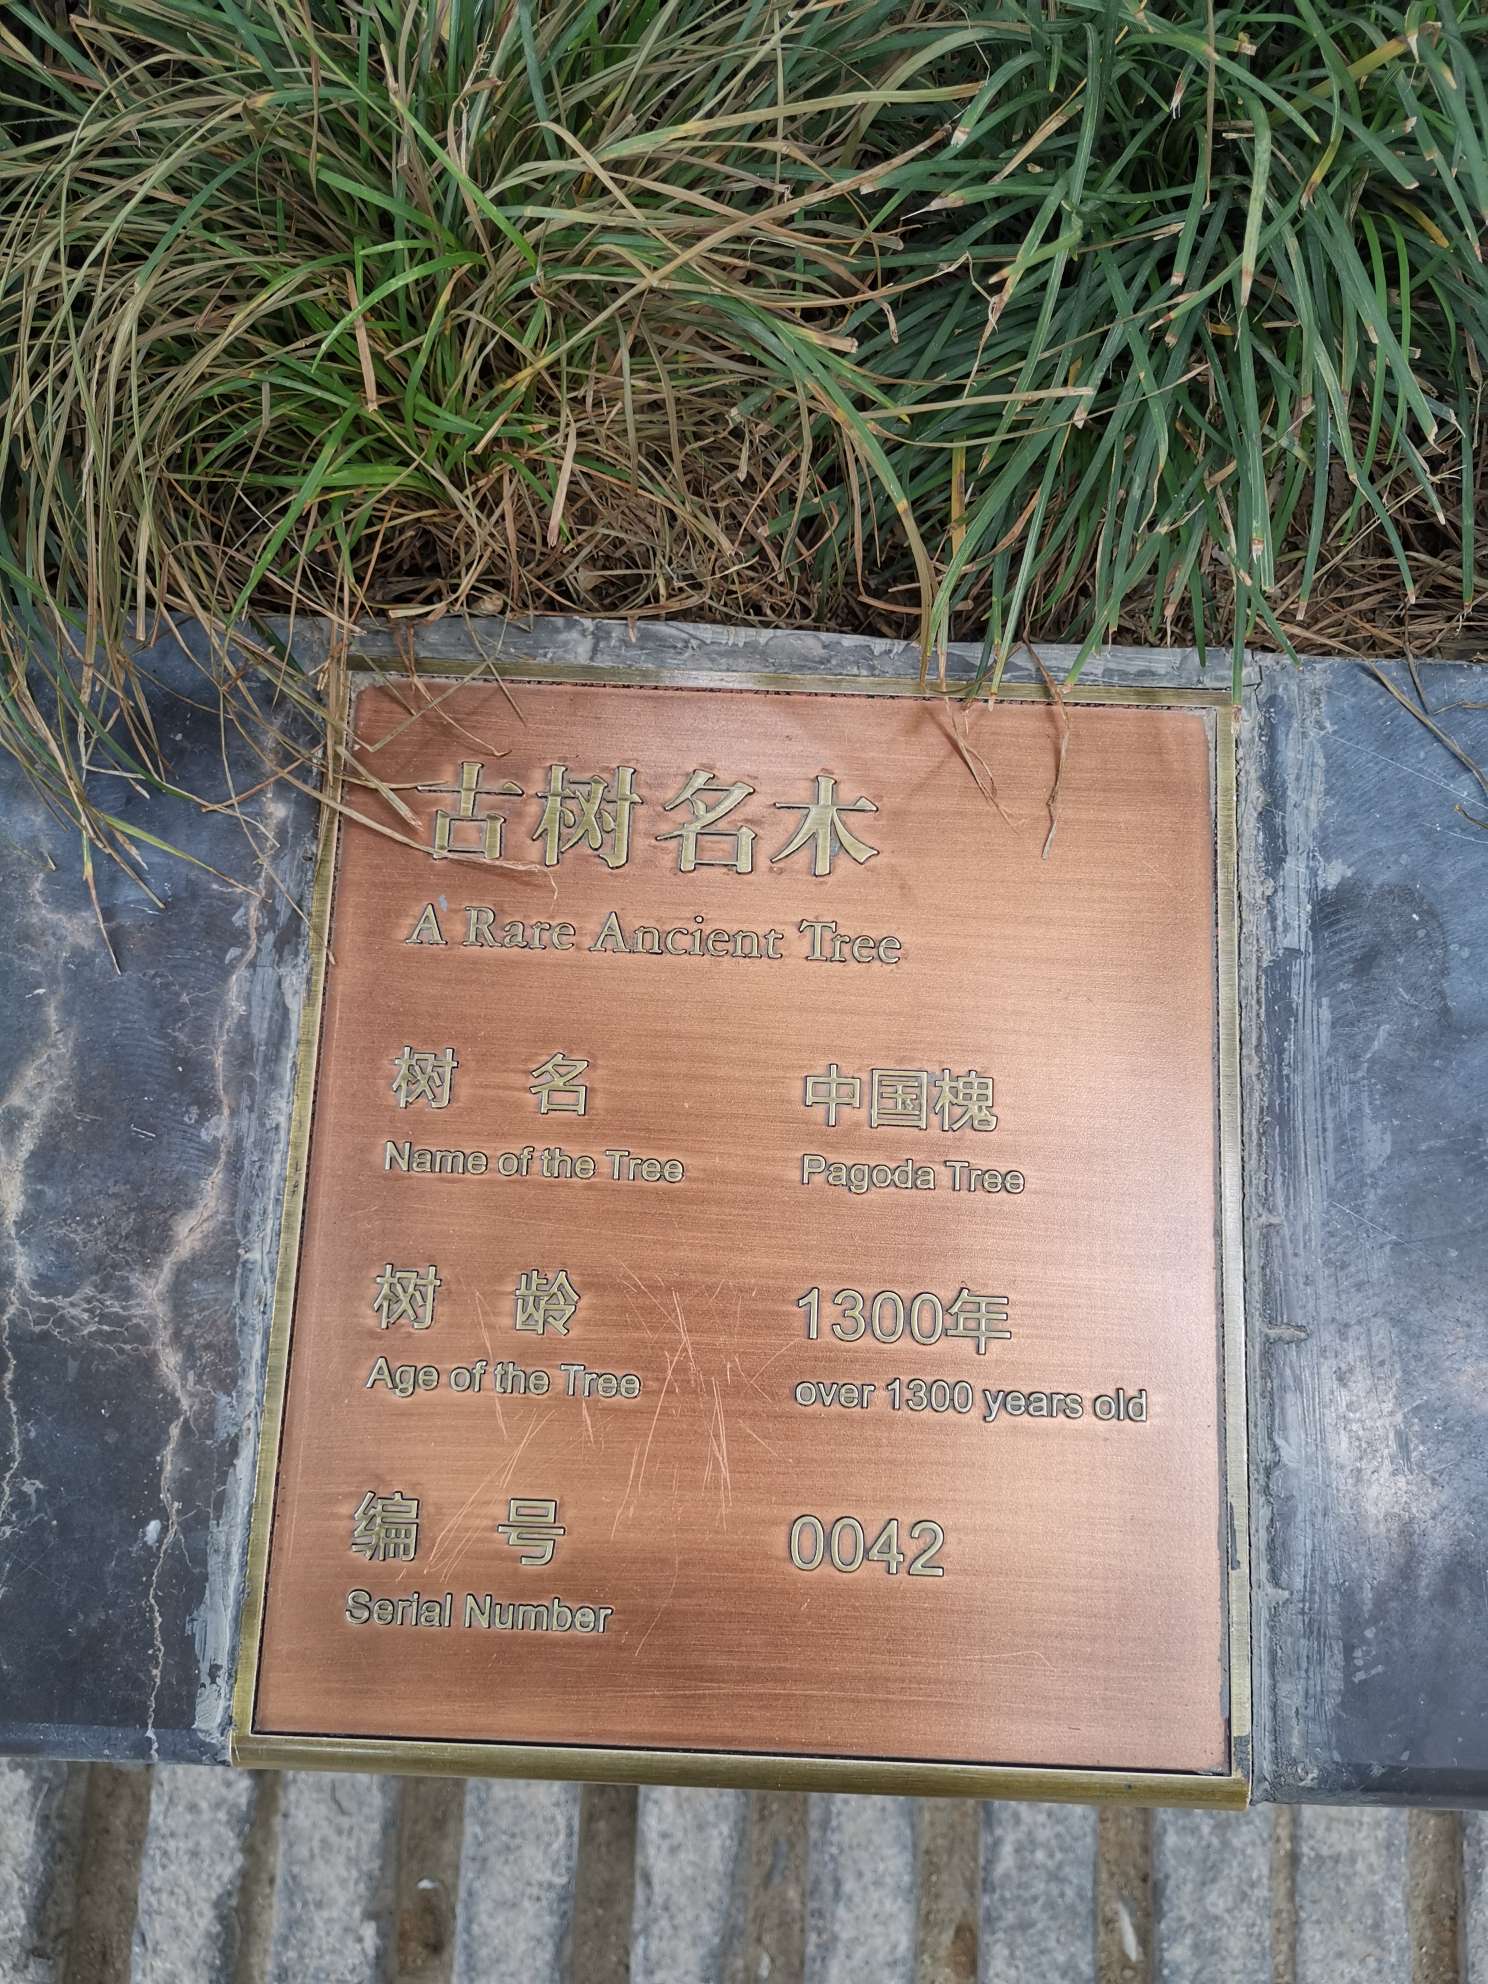 古树名木
A Rare Ancient Tree
树 名 中国槐
Name of the Tree Pagoda Tree
树 龄 1300年
Age of the Tree over 1300 years old
编 号 0042
Serial Number